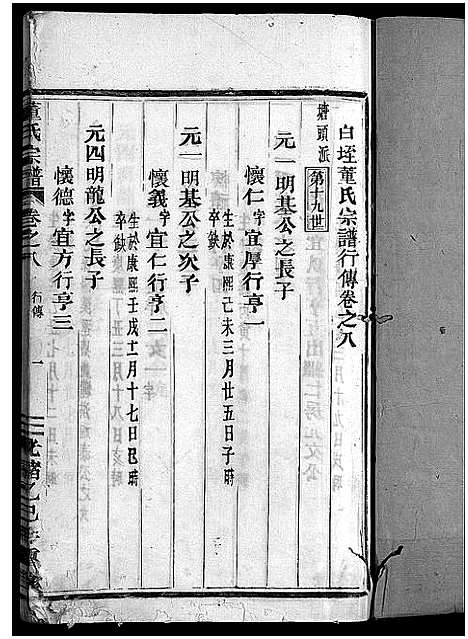 白垤董氏宗譜行傳卷之八
塘頭派
第十九世
元一明基公之長子
懷仁字宜厚行亨一
生於康熙己未三月廿五日子時
卒缺
元一明基公之次子
懷義字宜仁行亨二
生於康熙壬戌十一月十七日巳時
卒缺
元四明龍公之長子
懷德字宜方行亨三
董氏宗譜
卷之八
行傳
一
光緒乙巳